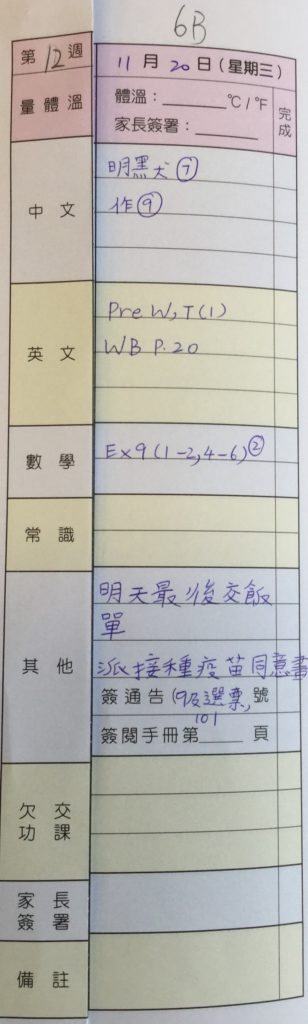 6B
第12週
11月20日(星期三)
量體溫
體溫：______℃/℉
家長簽署：________
完成
中文
明黑犬⑦
作⑨
英文
Pre W, T(1)
WB P.20
數學
Ex9(1-2,4-6)②
常識
其他
明天最後交飯
單
派接種疫苗同意書
簽通告(收選票, 號
101
簽閱手冊第____頁
欠交
功課
家長
簽署
備註